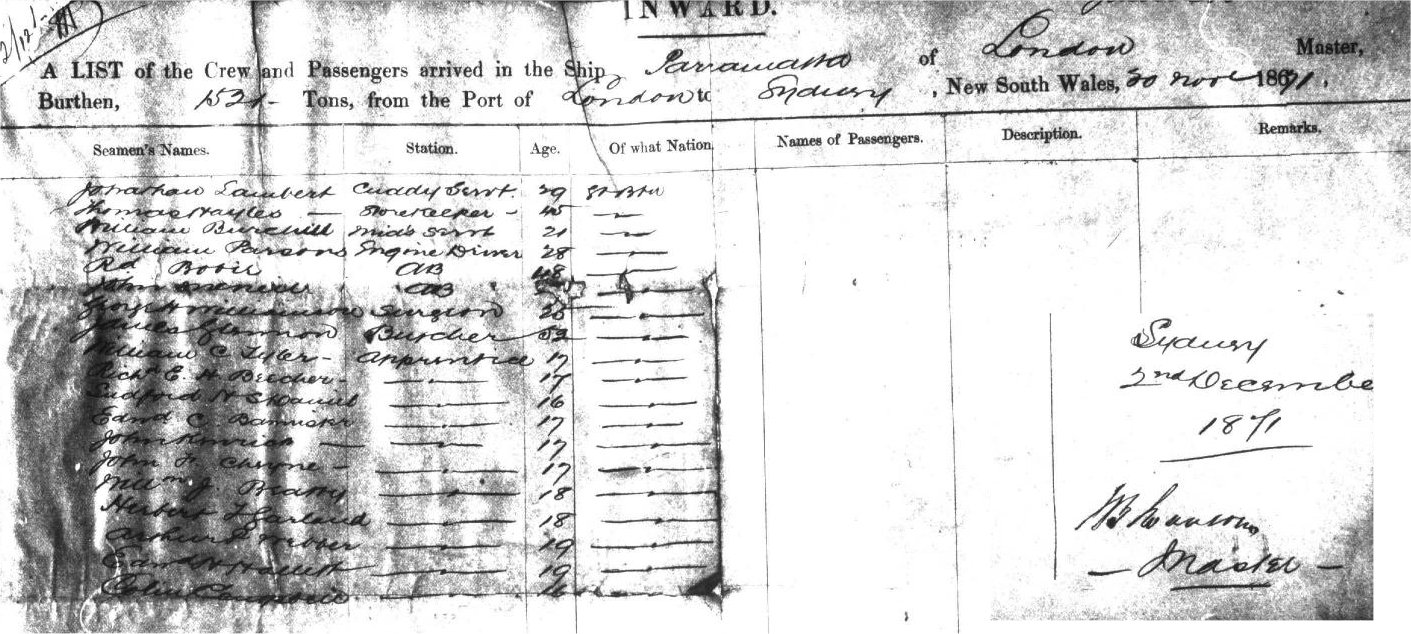 2/12/71
INWARD.
A LIST of the Crew and Passengers arrived in the Ship Parramatta of London Master,
Burthen, 1521 Tons, from the Port of London to Sydney, New South Wales, 30 Novr 1871.
Seamen's Names. Station. Age. Of what Nation. Names of Passengers. Description. Remarks.
Jonathan Lambert Cuddy Servt. 29 Gt Btn
Thomas Hayles — Storekeeper - 45 —
William Burchill Mid's Servt 21 —
William Parsons Engine Driver 28 —
Rd. AB 48 —
John AB —
George H Williamson Surgeon —
James Glennon Butcher 52 —
William C - Apprentice 17 —
Richd E. H. Beecher - — 17 —
H — 16 —
Edmd C Bannister — 17 —
John — — 17 —
John F. Cheyne - — 17 —
Willm J. Beatty — 18 —
Herbert F Garland — 18 —
Arthur — 19 —
Edmd H Hallett — 19 —
Colin Campbell — 16 —
Sydney
2nd Decembe
1871
Master